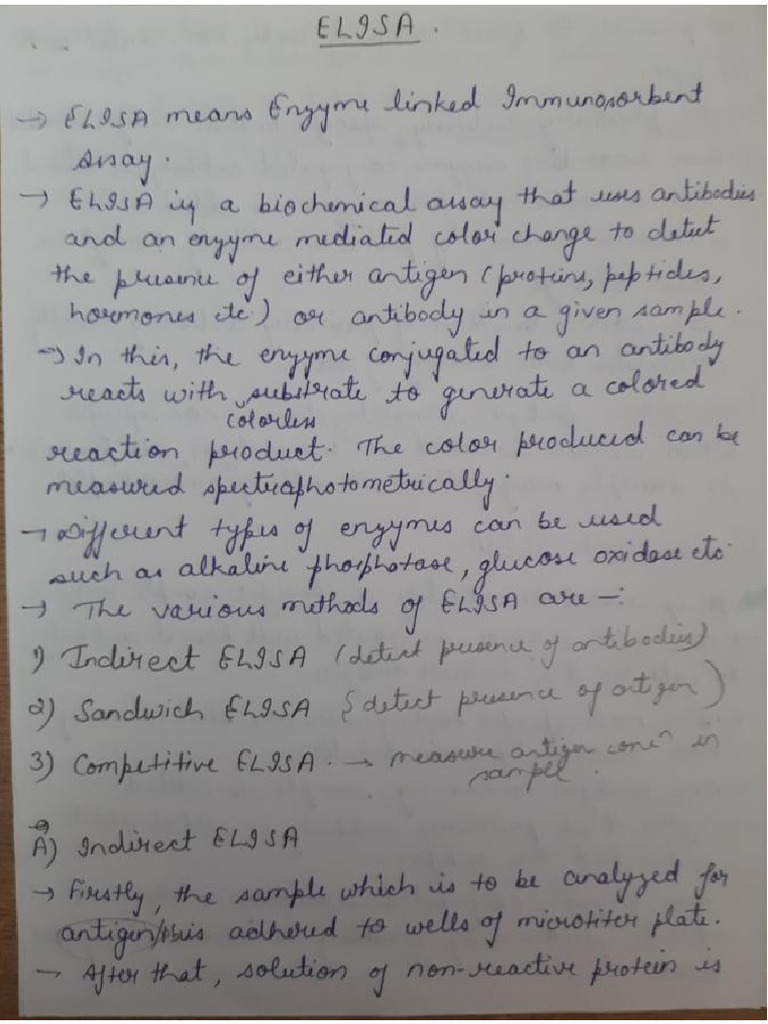 ELISA.
→ ELISA means Enzyme linked Immunosorbent
assay.
→ ELISA is a biochemical assay that uses antibodies
and an enzyme mediated color change to detect
the presence of either antigen (proteins, peptides,
hormones etc.) or antibody in a given sample.
→ In this, the enzyme conjugated to an antibody
reacts with substrate to generate a colored
colorless
reaction product. The color produced can be
measured spectrophotometrically.
→ Different types of enzymes can be used
such as alkaline phosphotase, glucose oxidase etc.
→ The various methods of ELISA are –:
1) Indirect ELISA (detect presence of antibodies)
2) Sandwich ELISA {detect presence of antigen)
3) Competitive ELISA. → measure antigen concⁿ in
sample.
A) Indirect ELISA
→ Firstly, the sample which is to be analyzed for
antigen is adhered to wells of microtiter plate.
→ After that, solution of non-reactive protein is